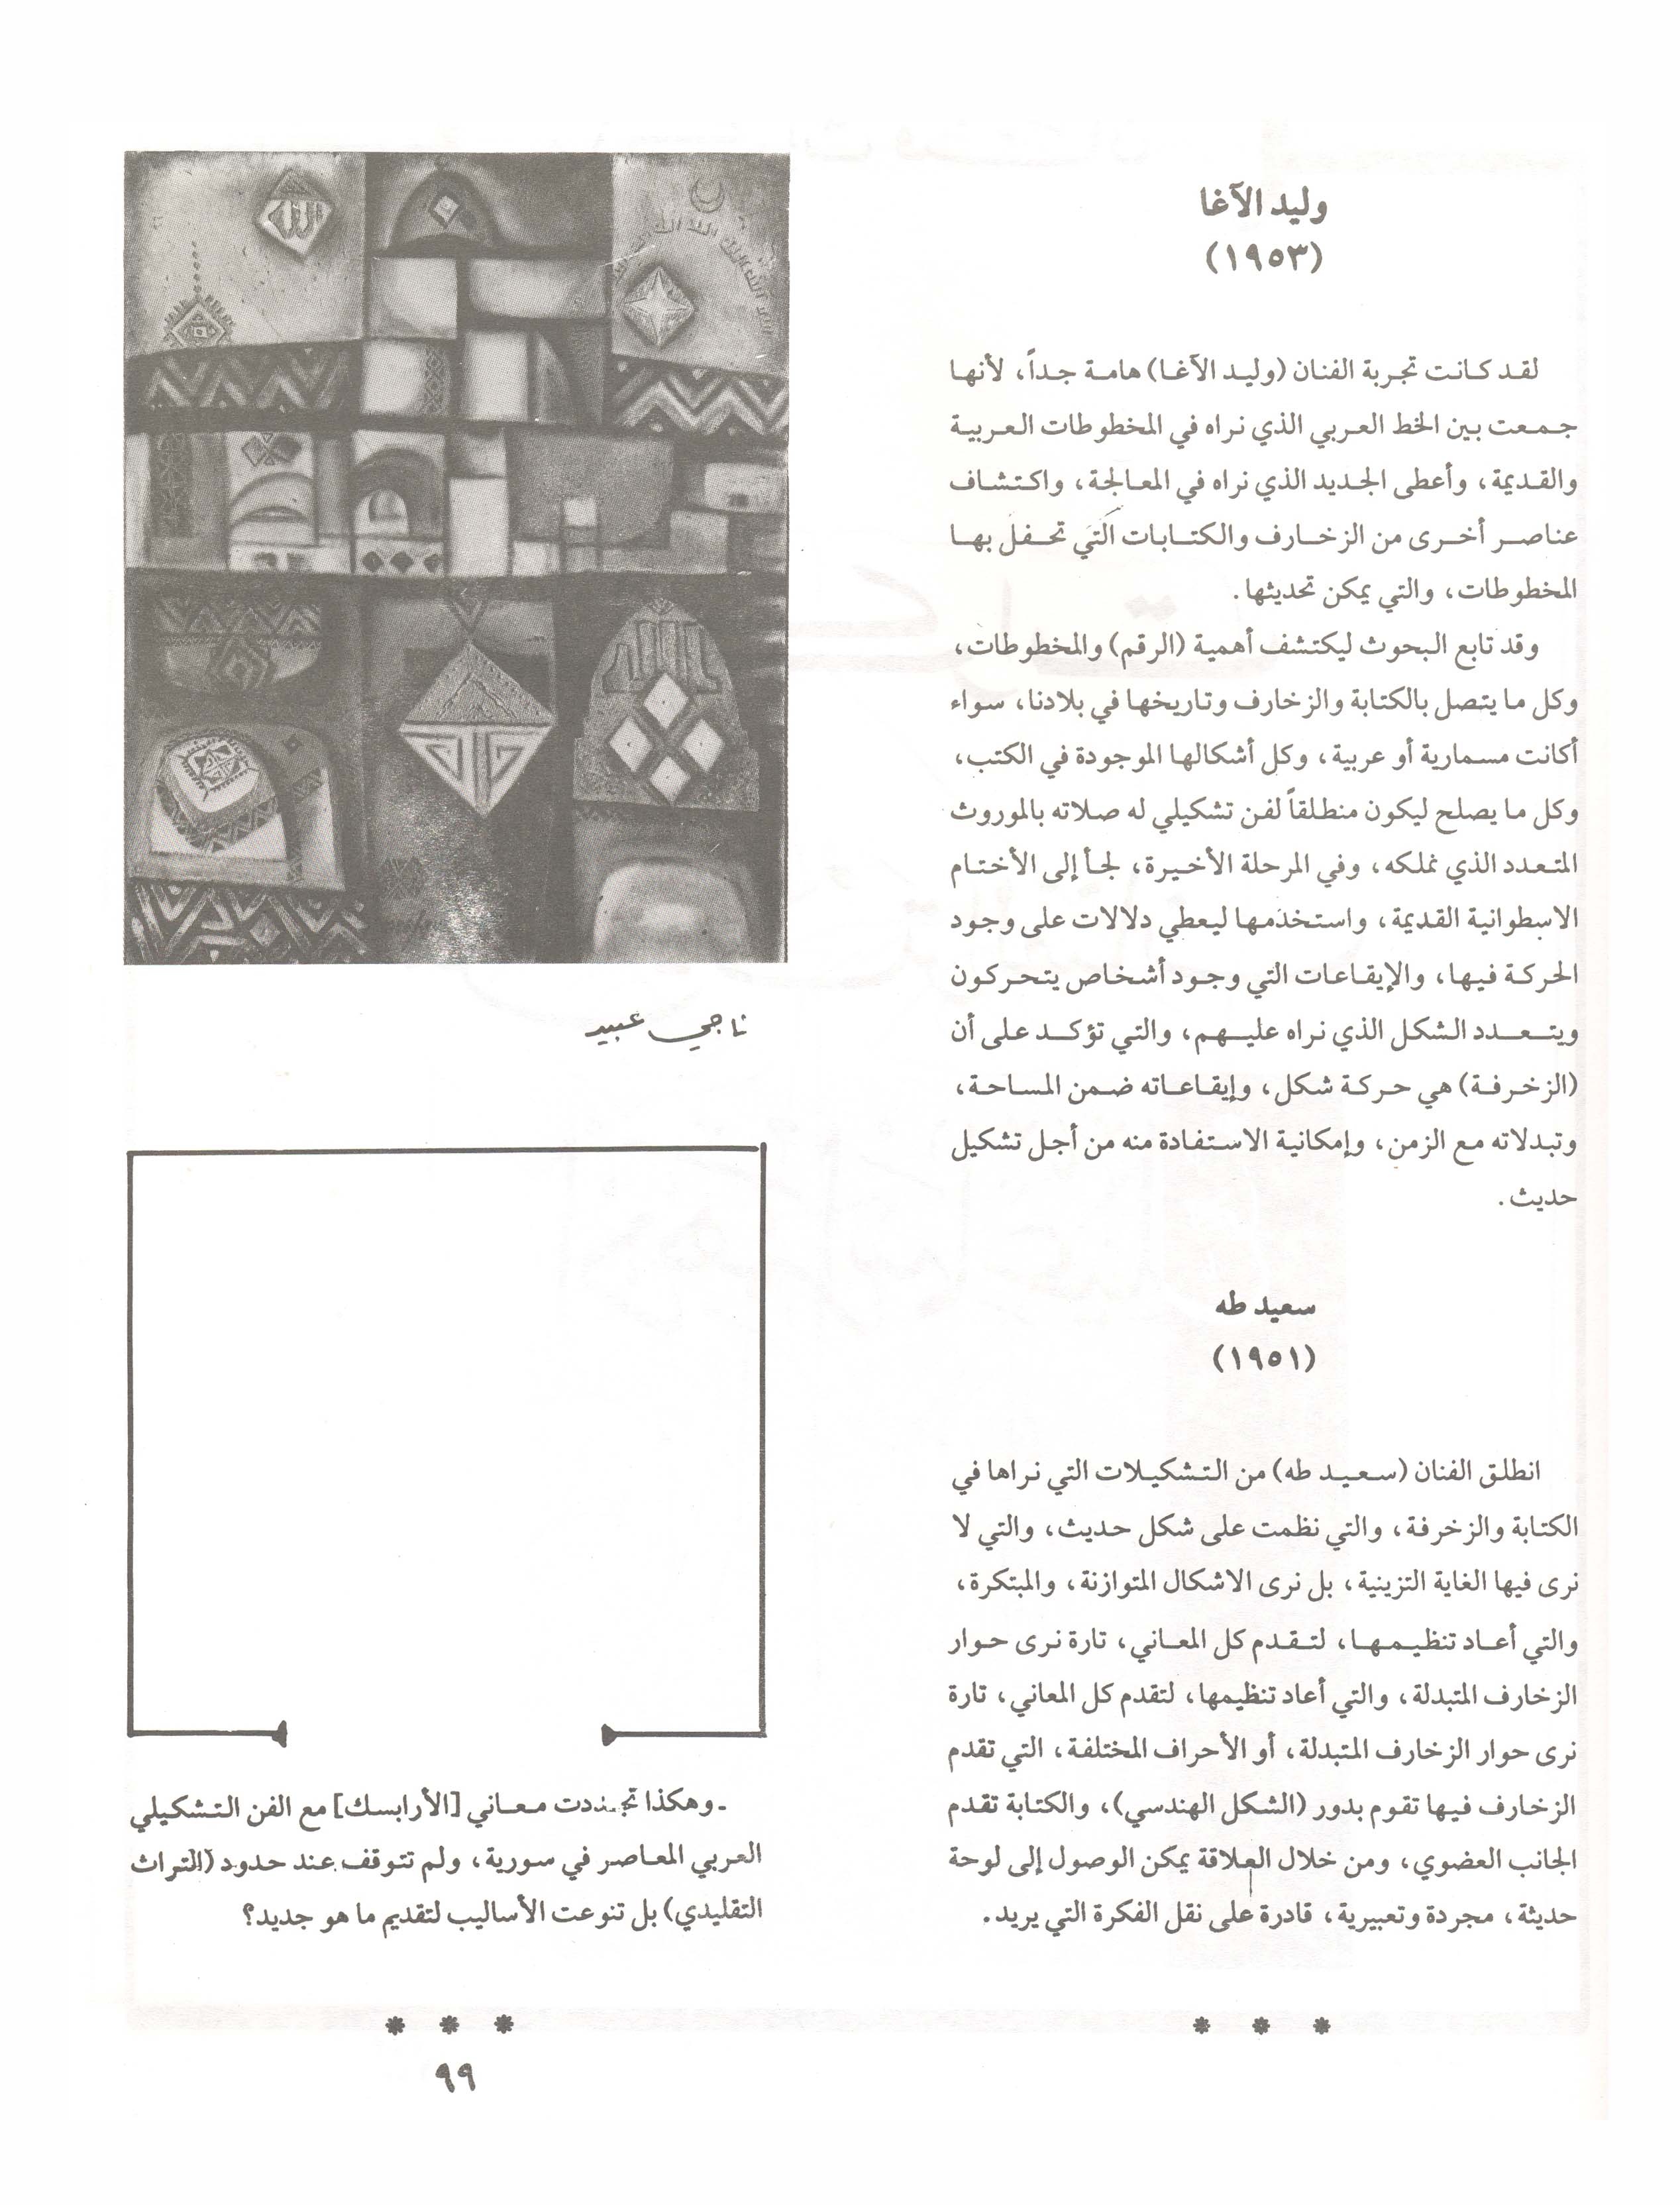 وليد الآغا
(١٩٥٣)
لقد كانت تجربة الفنان (وليد الآغا) هامة جداً، لأنها
جمعت بين الخط العربي الذي نراه في المخطوطات العربية
والقديمة، وأعطى الجديد الذي نراه في المعالجة، واكتشاف
عناصر أخرى من الزخارف والكتابات التي تحفل بها
المخطوطات، والتي يمكن تحديثها.
وقد تابع البحوث ليكتشف أهمية (الرقم) والمخطوطات،
وكل ما يتصل بالكتابة والزخارف وتاريخها في بلادنا، سواء
أكانت مسمارية أو عربية، وكل أشكالها الموجودة في الكتب،
وكل ما يصلح ليكون منطلقاً لفن تشكيلي له صلاته بالموروث
المتعدد الذي نملكه، وفي المرحلة الأخيرة، لجأ إلى الأختام
الاسطوانية القديمة، واستخدمها ليعطي دلالات على وجود
الحركة فيها، والإيقاعات التي وجود أشخاص يتحركون
ويتعدد الشكل الذي نراه عليهم، والتي تؤكد على أن
(الزخرفة) هي حركة شكل، وإيقاعاته ضمن المساحة،
وتبدلاته مع الزمن، وإمكانية الاستفادة منه من أجل تشكيل
حديث.
سعيد طه
(١٩٥١)
انطلق الفنان (سعيد طه) من التشكيلات التي نراها في
الكتابة والزخرفة، والتي نظمت على شكل حديث، والتي لا
نرى فيها الغاية التزينية، بل نرى الاشكال المتوازنة، والمبتكرة،
والتي أعاد تنظيمها، لتقدم كل المعاني، تارة نرى حوار
الزخارف المتبدلة، والتي أعاد تنظيمها، لتقدم كل المعاني، تارة
نرى حوار الزخارف المتبدلة، أو الأحراف المختلفة، التي تقدم
الزخارف فيها تقوم بدور (الشكل الهندسي)، والكتابة تقدم
الجانب العضوي، ومن خلال العلاقة يمكن الوصول إلى لوحة
حديثة، مجردة وتعبيرية، قادرة على نقل الفكرة التي يريد.
* * *
الله
الله
ناجي عبيد
ـ وهكذا تجددت معاني [الأرابسك] مع الفن التشكيلي
العربي المعاصر في سورية، ولم تتوقف عند حدود (التراث
التقليدي) بل تنوعت الأساليب لتقديم ما هو جديد؟
* * *
٩٩